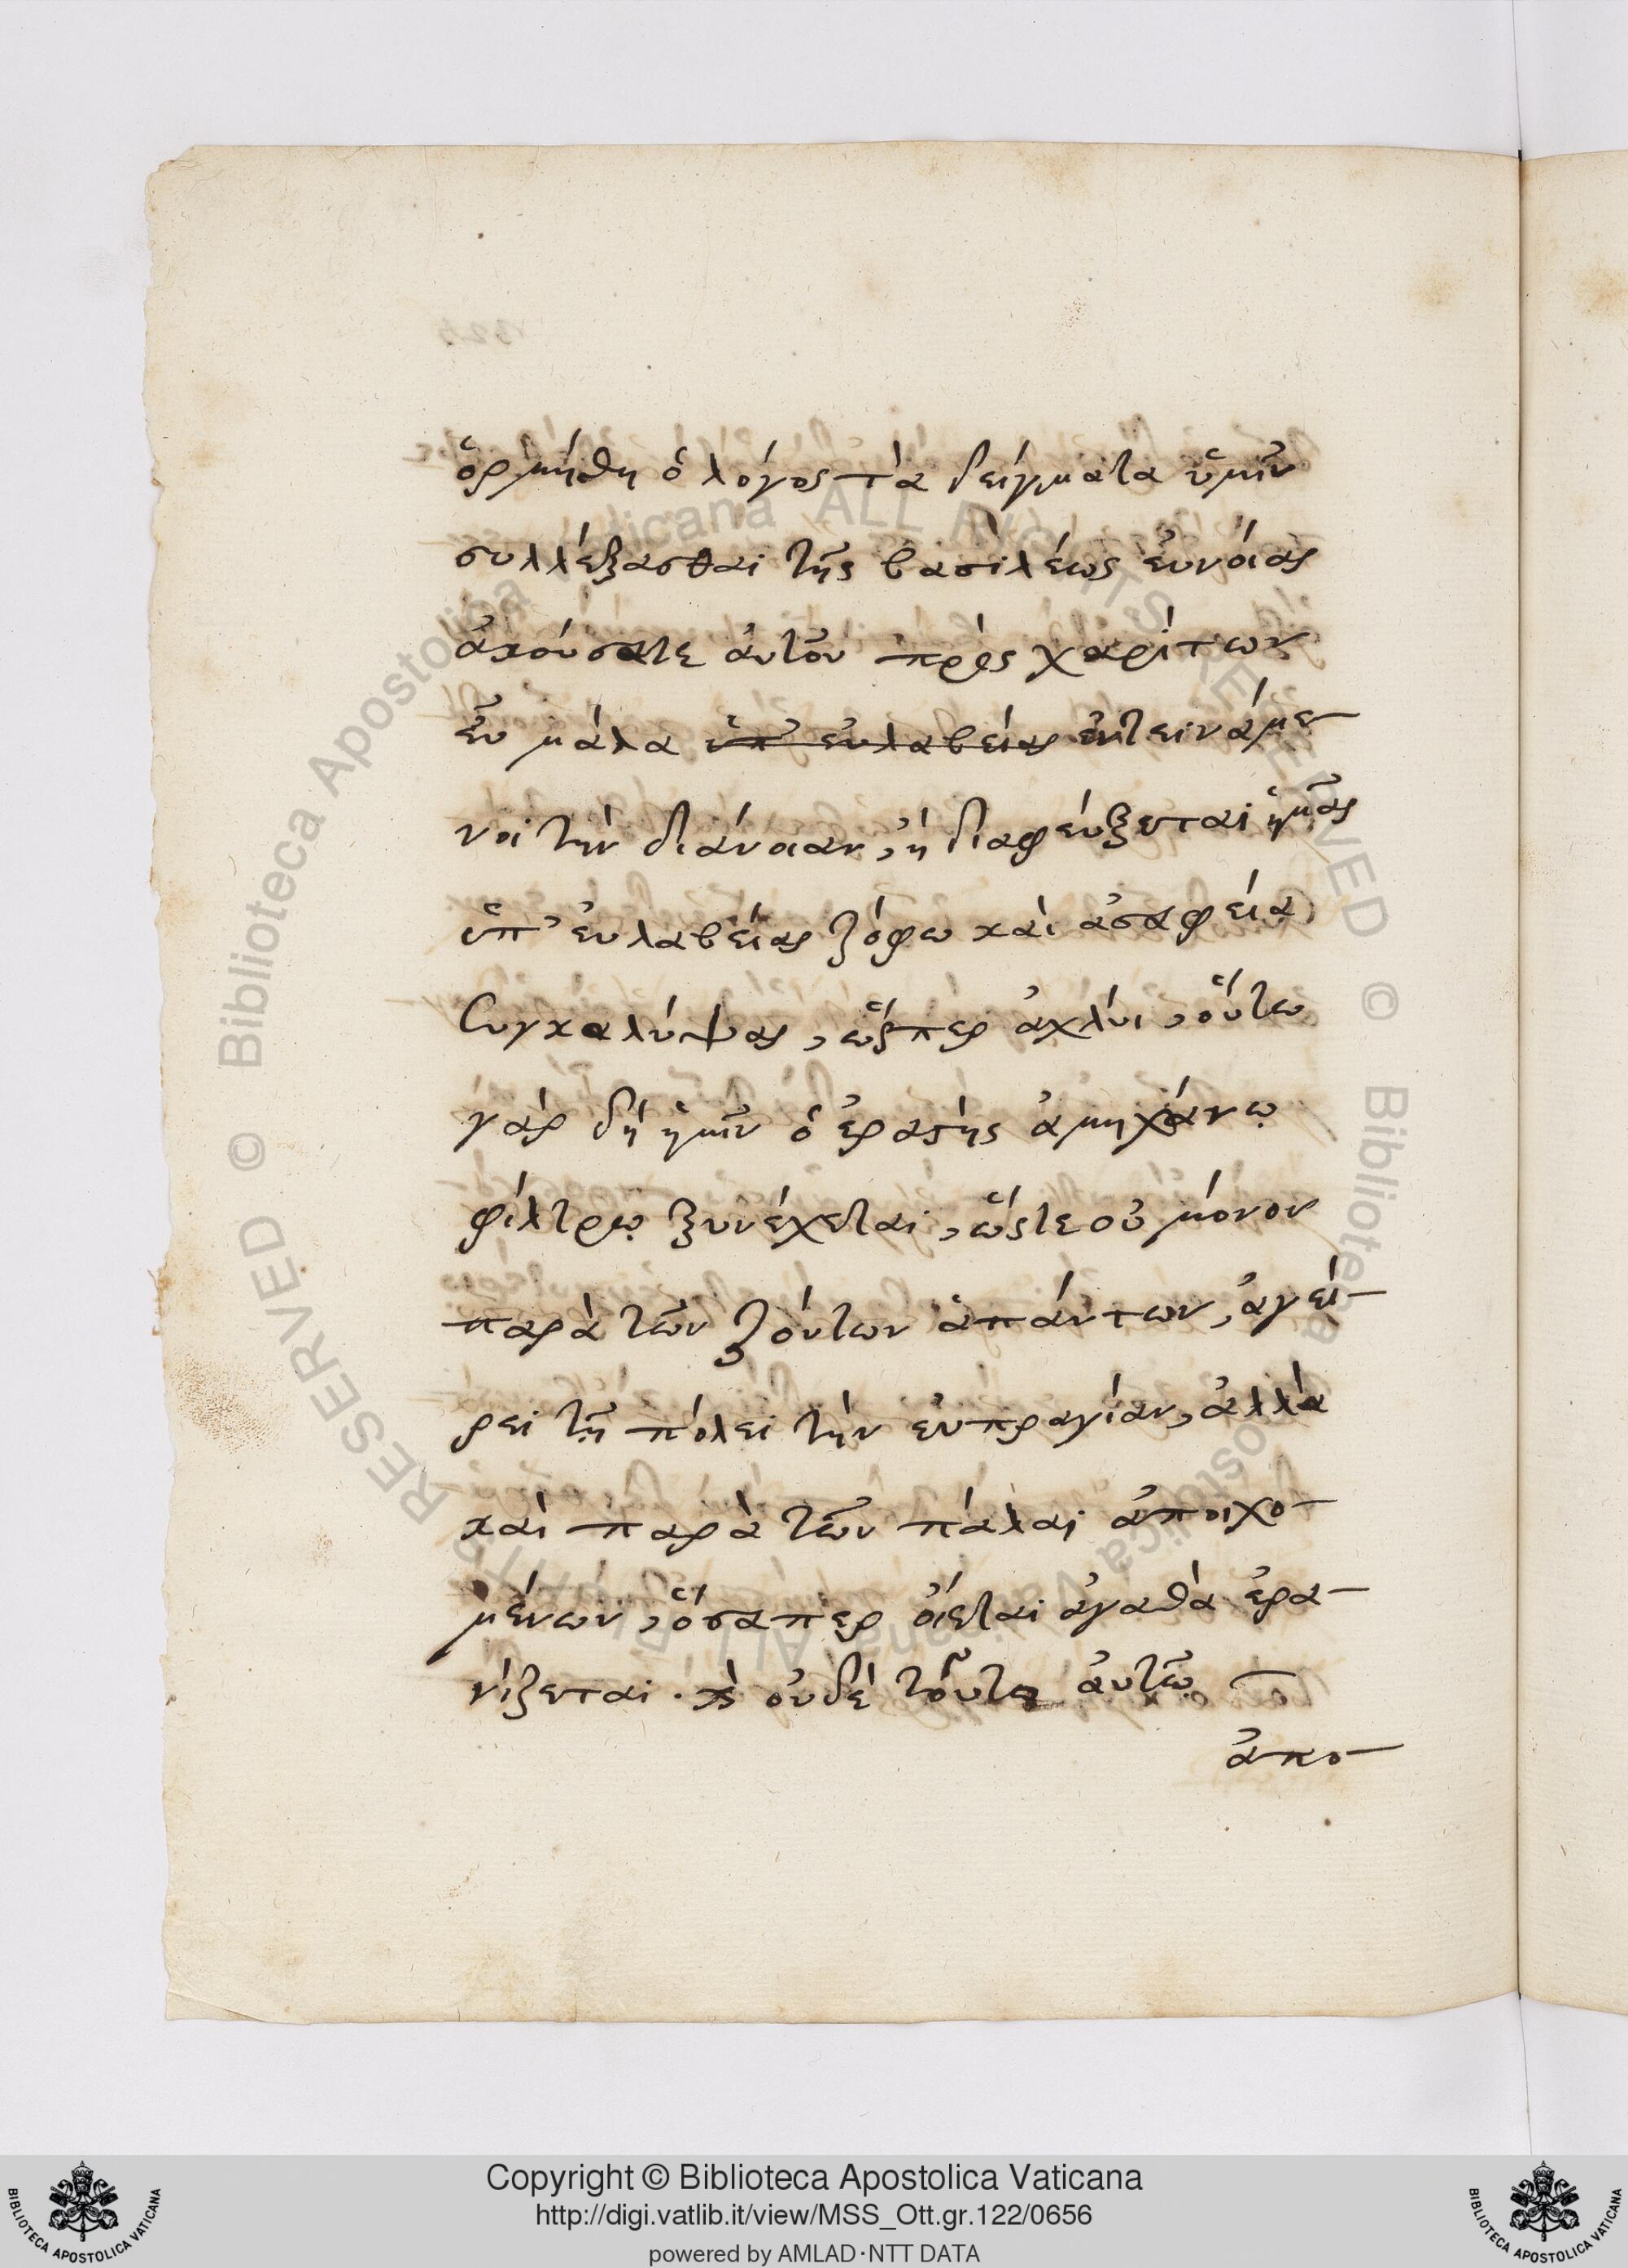 ὁρμήθη ὁ λόγος τὰ δείγματα ὑμῖν
συλλέξασθαι τῆς βασιλέως ἐυνόιας
ἀκόυσατε ἀυτοῦ πρὸς χαρίτων
ἐῦ μάλα ὑπ' ἐυλαβείας ἐντεινάμε-
νοι τὴν διάνοιαν, ἢ διαφέυξεται ἡμᾶς
ὑπ' ἐυλαβείας ζόφω καὶ ἀσαφεία
συγκαλύψας, ὥσπερ ἀχλύι, ὅυτω
γὰρ δὴ ἡμῖν ὁ ἐραστὴς ἀμηχάνῳ
φίλτρῳ ξυνέχεται, ὥστε οὐ μόνον
παρὰ τῶν ζόντων ἁπάντων, ἀγεί-
ρει τῇ πόλει τὴν ἐυπραγίαν, ἀλλὰ
καὶ παρὰ τῶν πάλαι ἀποιχο-
μένων, ὅσαπερ ὄιεται ἀγαθὰ ἐρα-
νίζεται. καὶ ὀυδὲ τοῦτο ἀυτῷ
ἀπο-
Copyright © Biblioteca Apostolica Vaticana
http://digi.vatlib.it/view/MSS_Ott.gr.122/0656
powered by AMLAD·NTT DATA
BIBLIOTECA APOSTOLICA VATICANA
BIBLIOTECA APOSTOLICA VATICANA